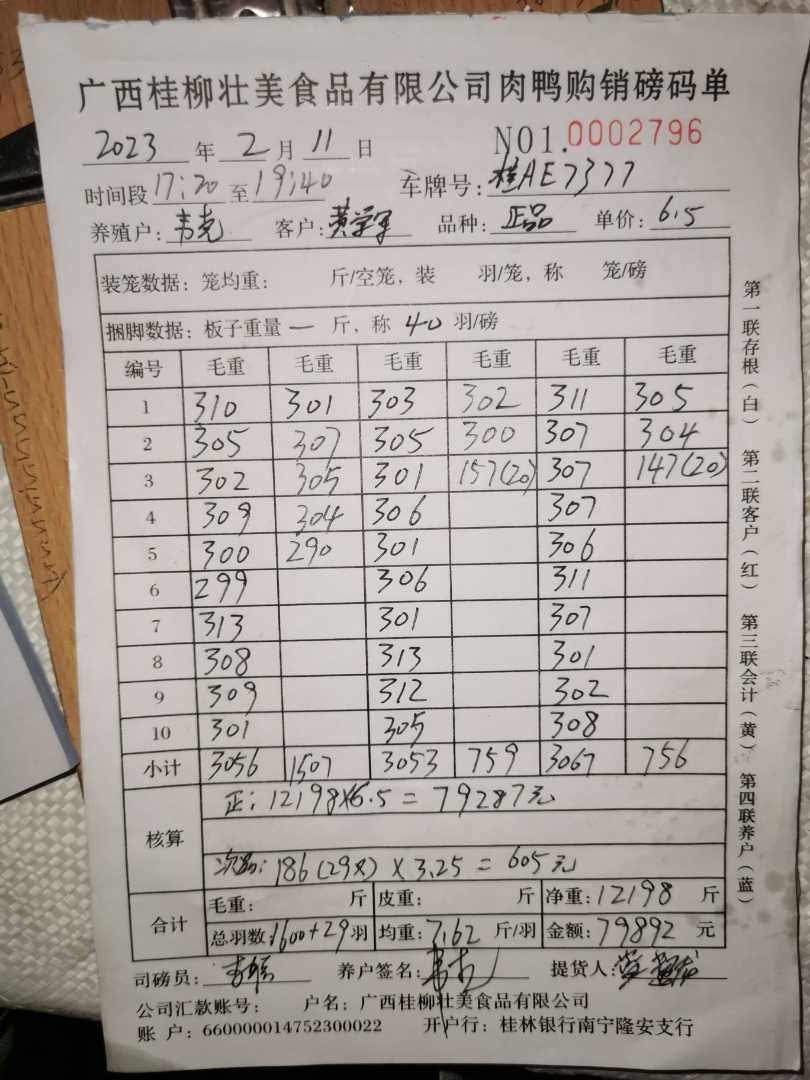 广西桂柳壮美食品有限公司肉鸭购销磅码单
2023 年 2 月 11 日 NO1.0002796
时间段 17:20 至 19:40 车牌号: 桂AE7377
养殖户: 韦尧 客户: 黄学军 品种: 正品 单价: 6.5
装笼数据: 笼均重: 斤/空笼, 装 羽/笼, 称 笼/磅
捆脚数据: 板子重量 一 斤, 称 40 羽/磅
编号 毛重 毛重 毛重 毛重 毛重 毛重
1 310 301 303 302 311 305
2 305 307 305 300 307 304
3 302 305 301 157(20) 307 147(20)
4 309 304 306 307
5 300 290 301 306
6 299 306 311
7 313 301 307
8 308 313 301
9 309 312 302
10 301 305 308
小计 3056 1507 3053 759 3067 756
核算
正: 12198×6.5=79287元
次品: 186(29只)×3.25=605元
合计
毛重: 斤 皮重: 斤 净重: 12198 斤
总羽数: 1600+29 羽 均重: 7.62 斤/羽 金额: 79892 元
司磅员: 养户签名: 提货人:
公司汇款账号: 户名: 广西桂柳壮美食品有限公司
账 户: 660000014752300022 开户行: 桂林银行南宁隆安支行
第一联存根(白) 第二联客户(红) 第三联会计(黄) 第四联养户(蓝)